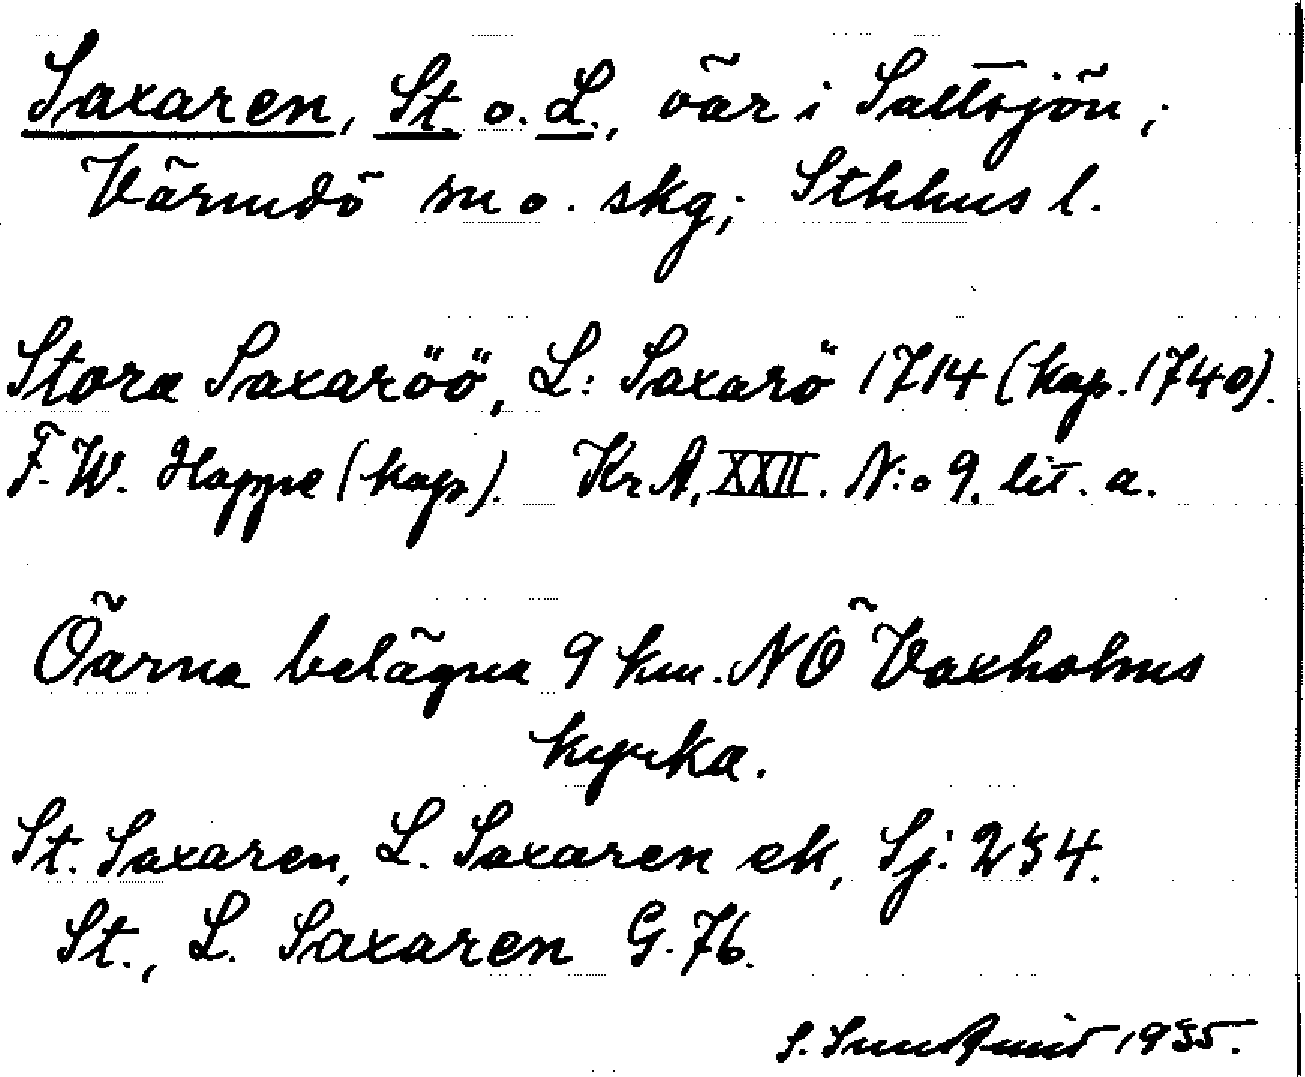 Saxaren, St. o. L., öar i Saltsjön;
Värmdö sn o. skg; Sthlms l.
Stora Saxaröö, L: Saxarö 1714 (kop. 1740).
F. W. Happe (kop). Kr A, XXII. N:o 9. lit. a.
Öarna belägna 9 km. NÖ Vaxholms
kyrka.
St. Saxaren, L. Saxaren ek, Sj: 234.
St., L. Saxaren G. 76.
S. 1935.